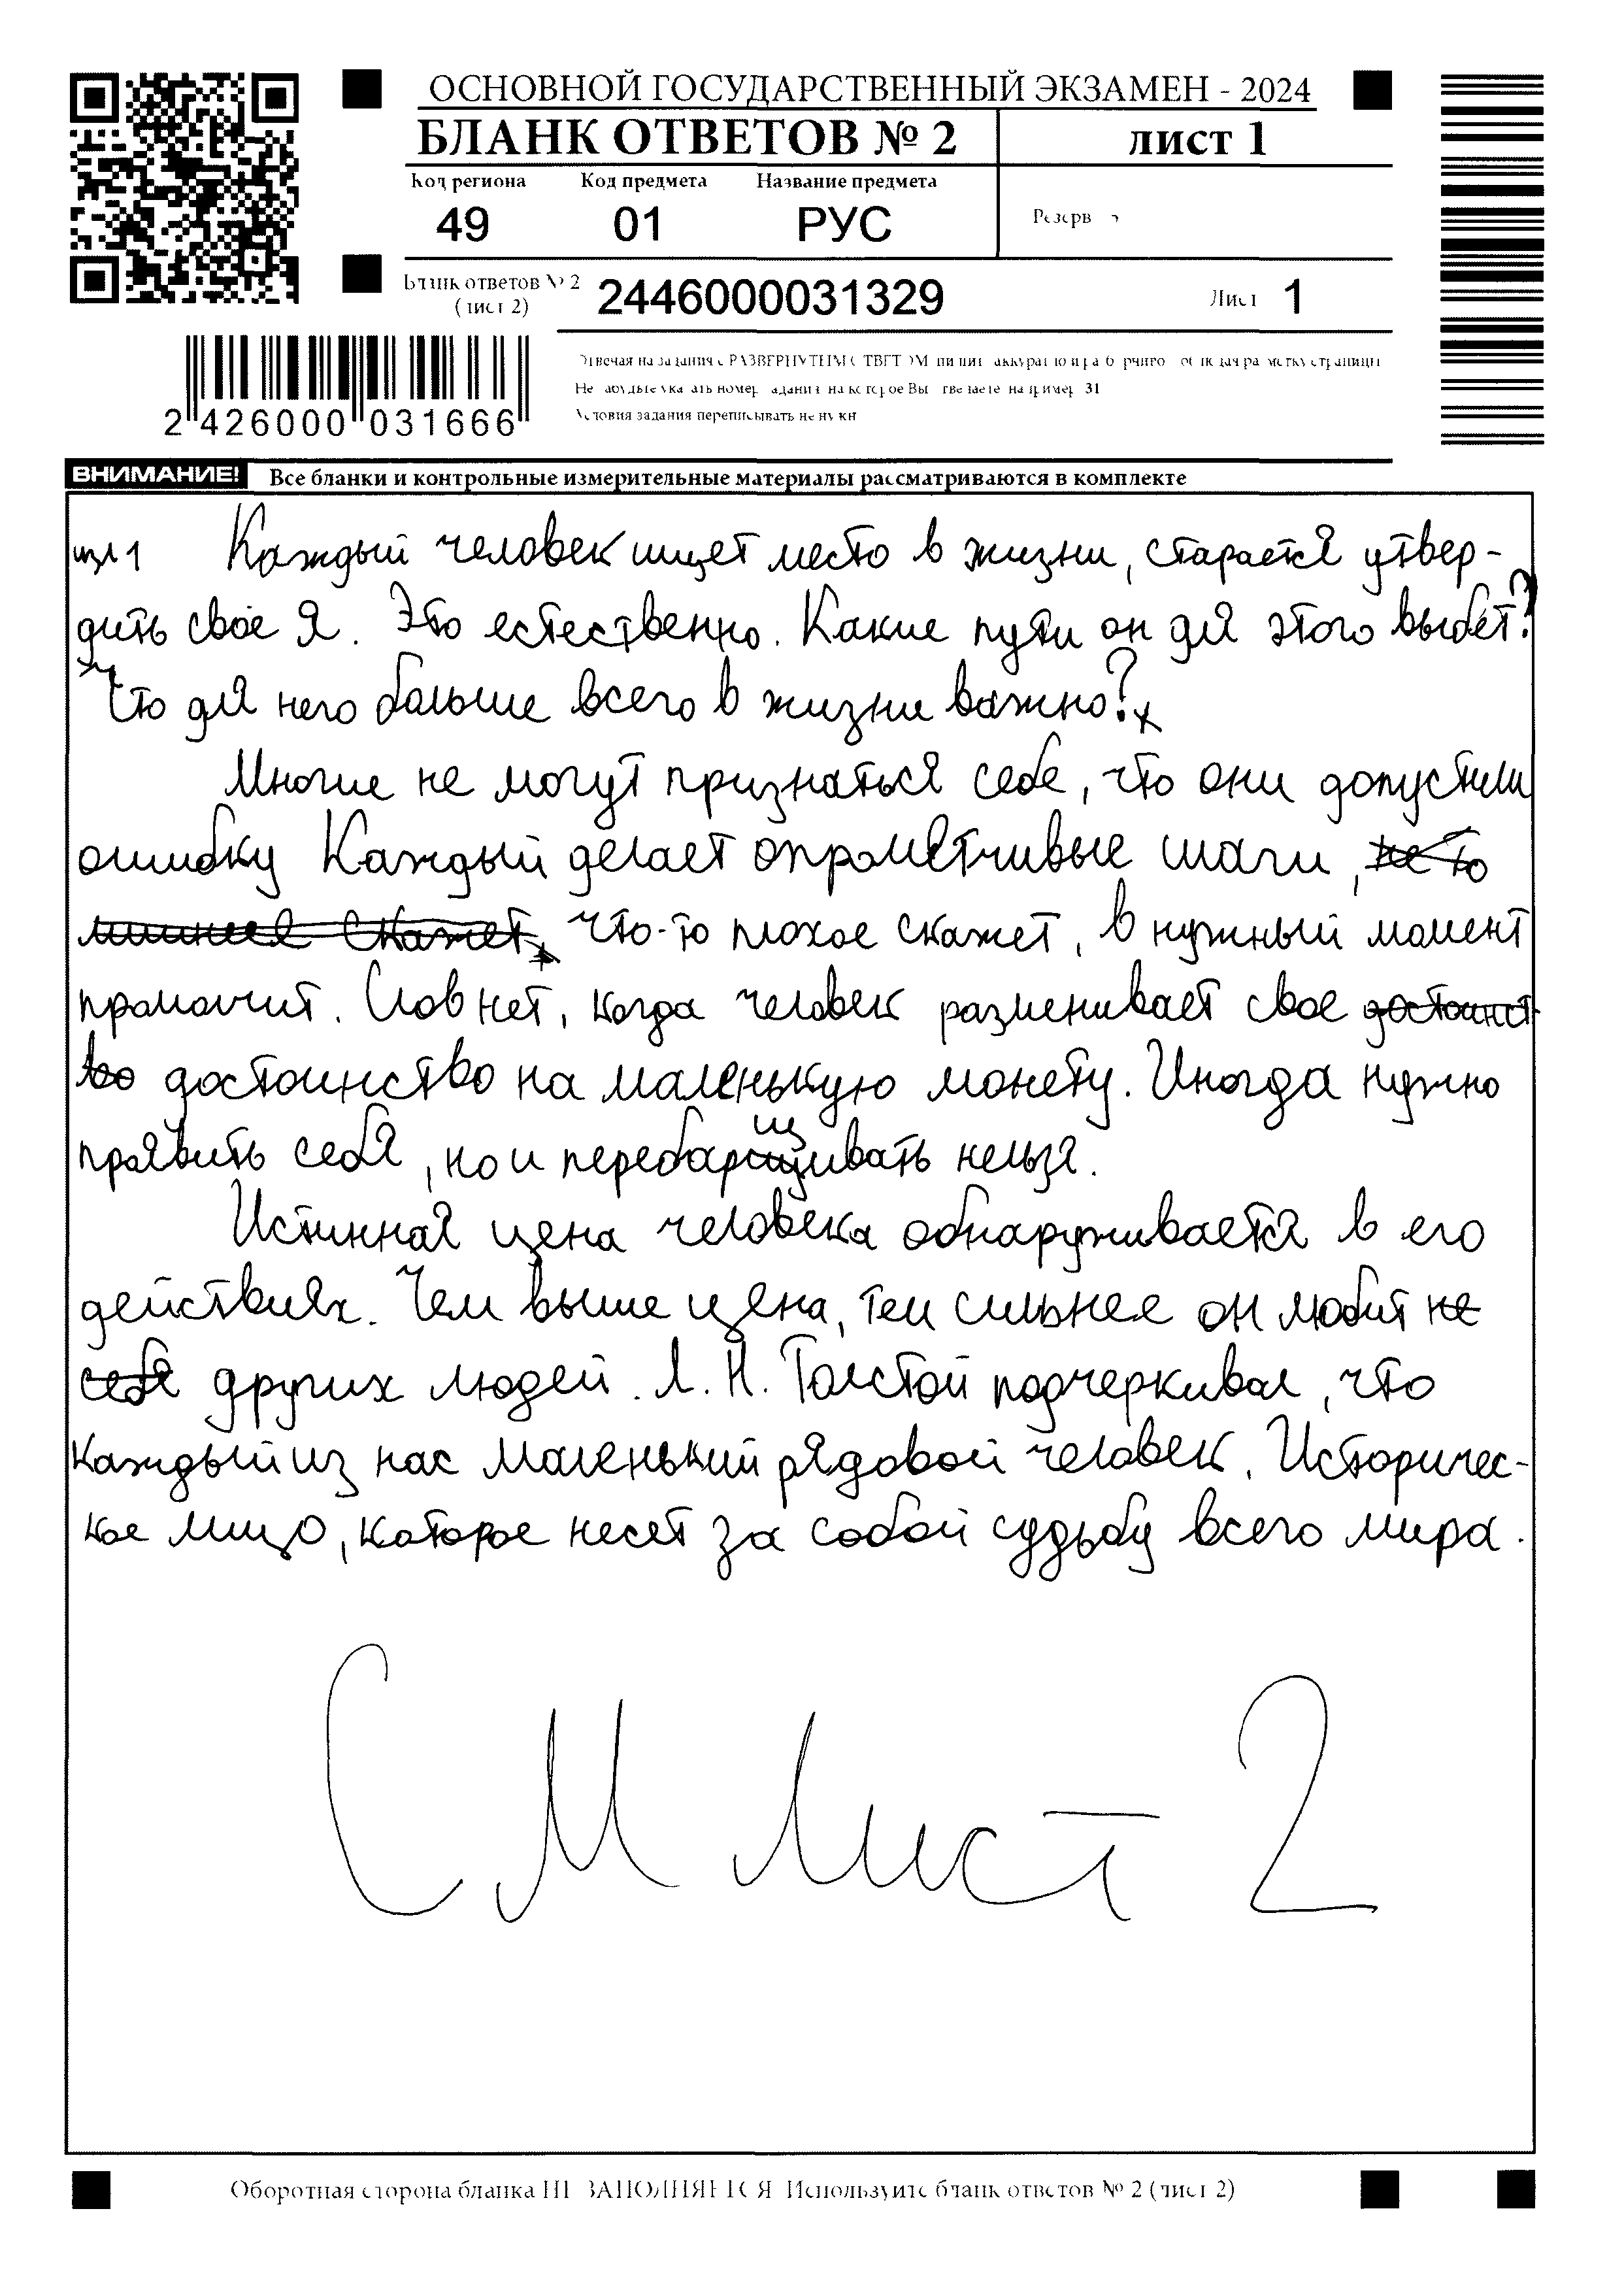 ОСНОВНОЙ ГОСУДАРСТВЕННЫЙ ЭКЗАМЕН - 2024
БЛАНК ОТВЕТОВ № 2 лист 1
Код региона Код предмета Название предмета
49 01 РУС
Резерв
Бланк ответов № 2 (лист 2) 2446000031329 Лист 1
Отвечая на задания с РАЗВЕРНУТЫМ ОТВЕТОМ, пишите аккуратно и разборчиво, соблюдая разметку страницы
Не забудьте указать номер задания, на которое Вы отвечаете, например, 31
Условия задания переписывать не нужно
2 426000 031666
ВНИМАНИЕ! Все бланки и контрольные измерительные материалы рассматриваются в комплекте
изл 1 Каждый человек ищет место в жизни, старается утвер-
дить свое Я. Это естественно. Какие пути он для этого выбет?
Что для него больше всего в жизни важно?
Многие не могут признаться себе, что они допустили
ошибку Каждый делает опрометчивые шаги, не то
лишнее скажет, что-то плохое скажет, в нужный момент
промолчит. Слов нет, когда человек разменивает свое достоинст
во достоинство на маленькую монету. Иногда нужно
проявить себя, но и перебарщивать нельзя.
Истинная цена человека обнаруживается в его
действиях. Чем выше цена, тем сильнее он любит не
себя других людей. Л. Н. Толстой подчеркивал, что
каждый из нас маленький рядовой человек. Историчес-
кое лицо, которое несет за собой судьбу всего мира.
См лист 2
Оборотная сторона бланка НЕ ЗАПОЛНЯЕТСЯ. Используйте бланк ответов № 2 (лист 2)